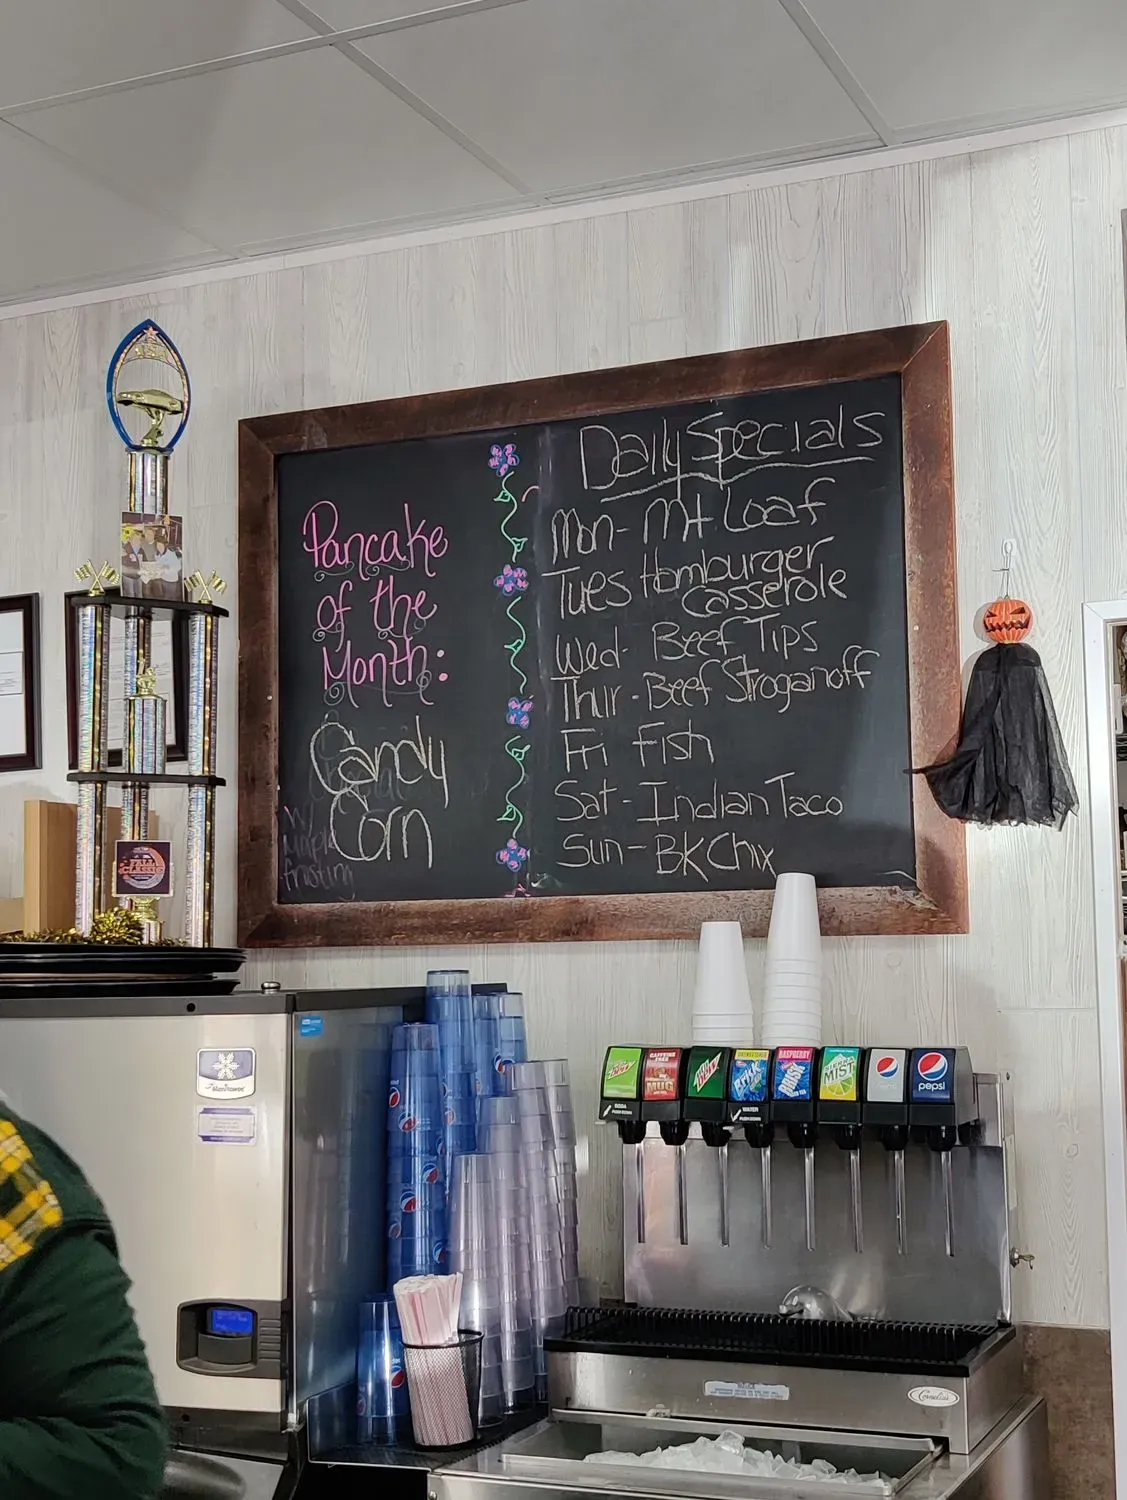 Pancake
of the
Month:
Candy
Corn
w/
Maple
frosting
Daily Specials
Mon - Mt Loaf
Tues Hamburger
Casserole
Wed - Beef Tips
Thur - Beef Stroganoff
Fri Fish
Sat - Indian Taco
Sun - BK Chix
CAFFEINE FREE
MUG
RASPBERRY
BRISK
BRISK
MIST
pepsi
SODA
WATER
Cornelius